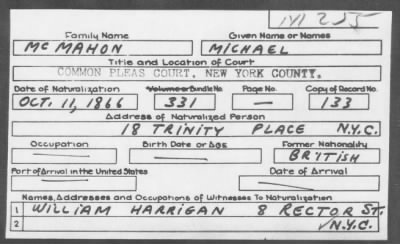 M 255
Family Name Given Name or Names
MCMAHON MICHAEL
Title and Location of Court
COMMON PLEAS COURT, NEW YORK COUNTY.
Date of Naturalization Volume or Bundle No. Page No. Copy of Record No.
OCT. 11, 1866 331 — 133
Address of Naturalized Person
18 TRINITY PLACE N.Y.C.
Occupation Birth Date or Age Former Nationality
— — BRITISH
Port of Arrival in the United States Date of Arrival
— —
Names, Addresses and Occupations of Witnesses To Naturalization
1 WILLIAM HARRIGAN 8 RECTOR ST.
2 N.Y.C.